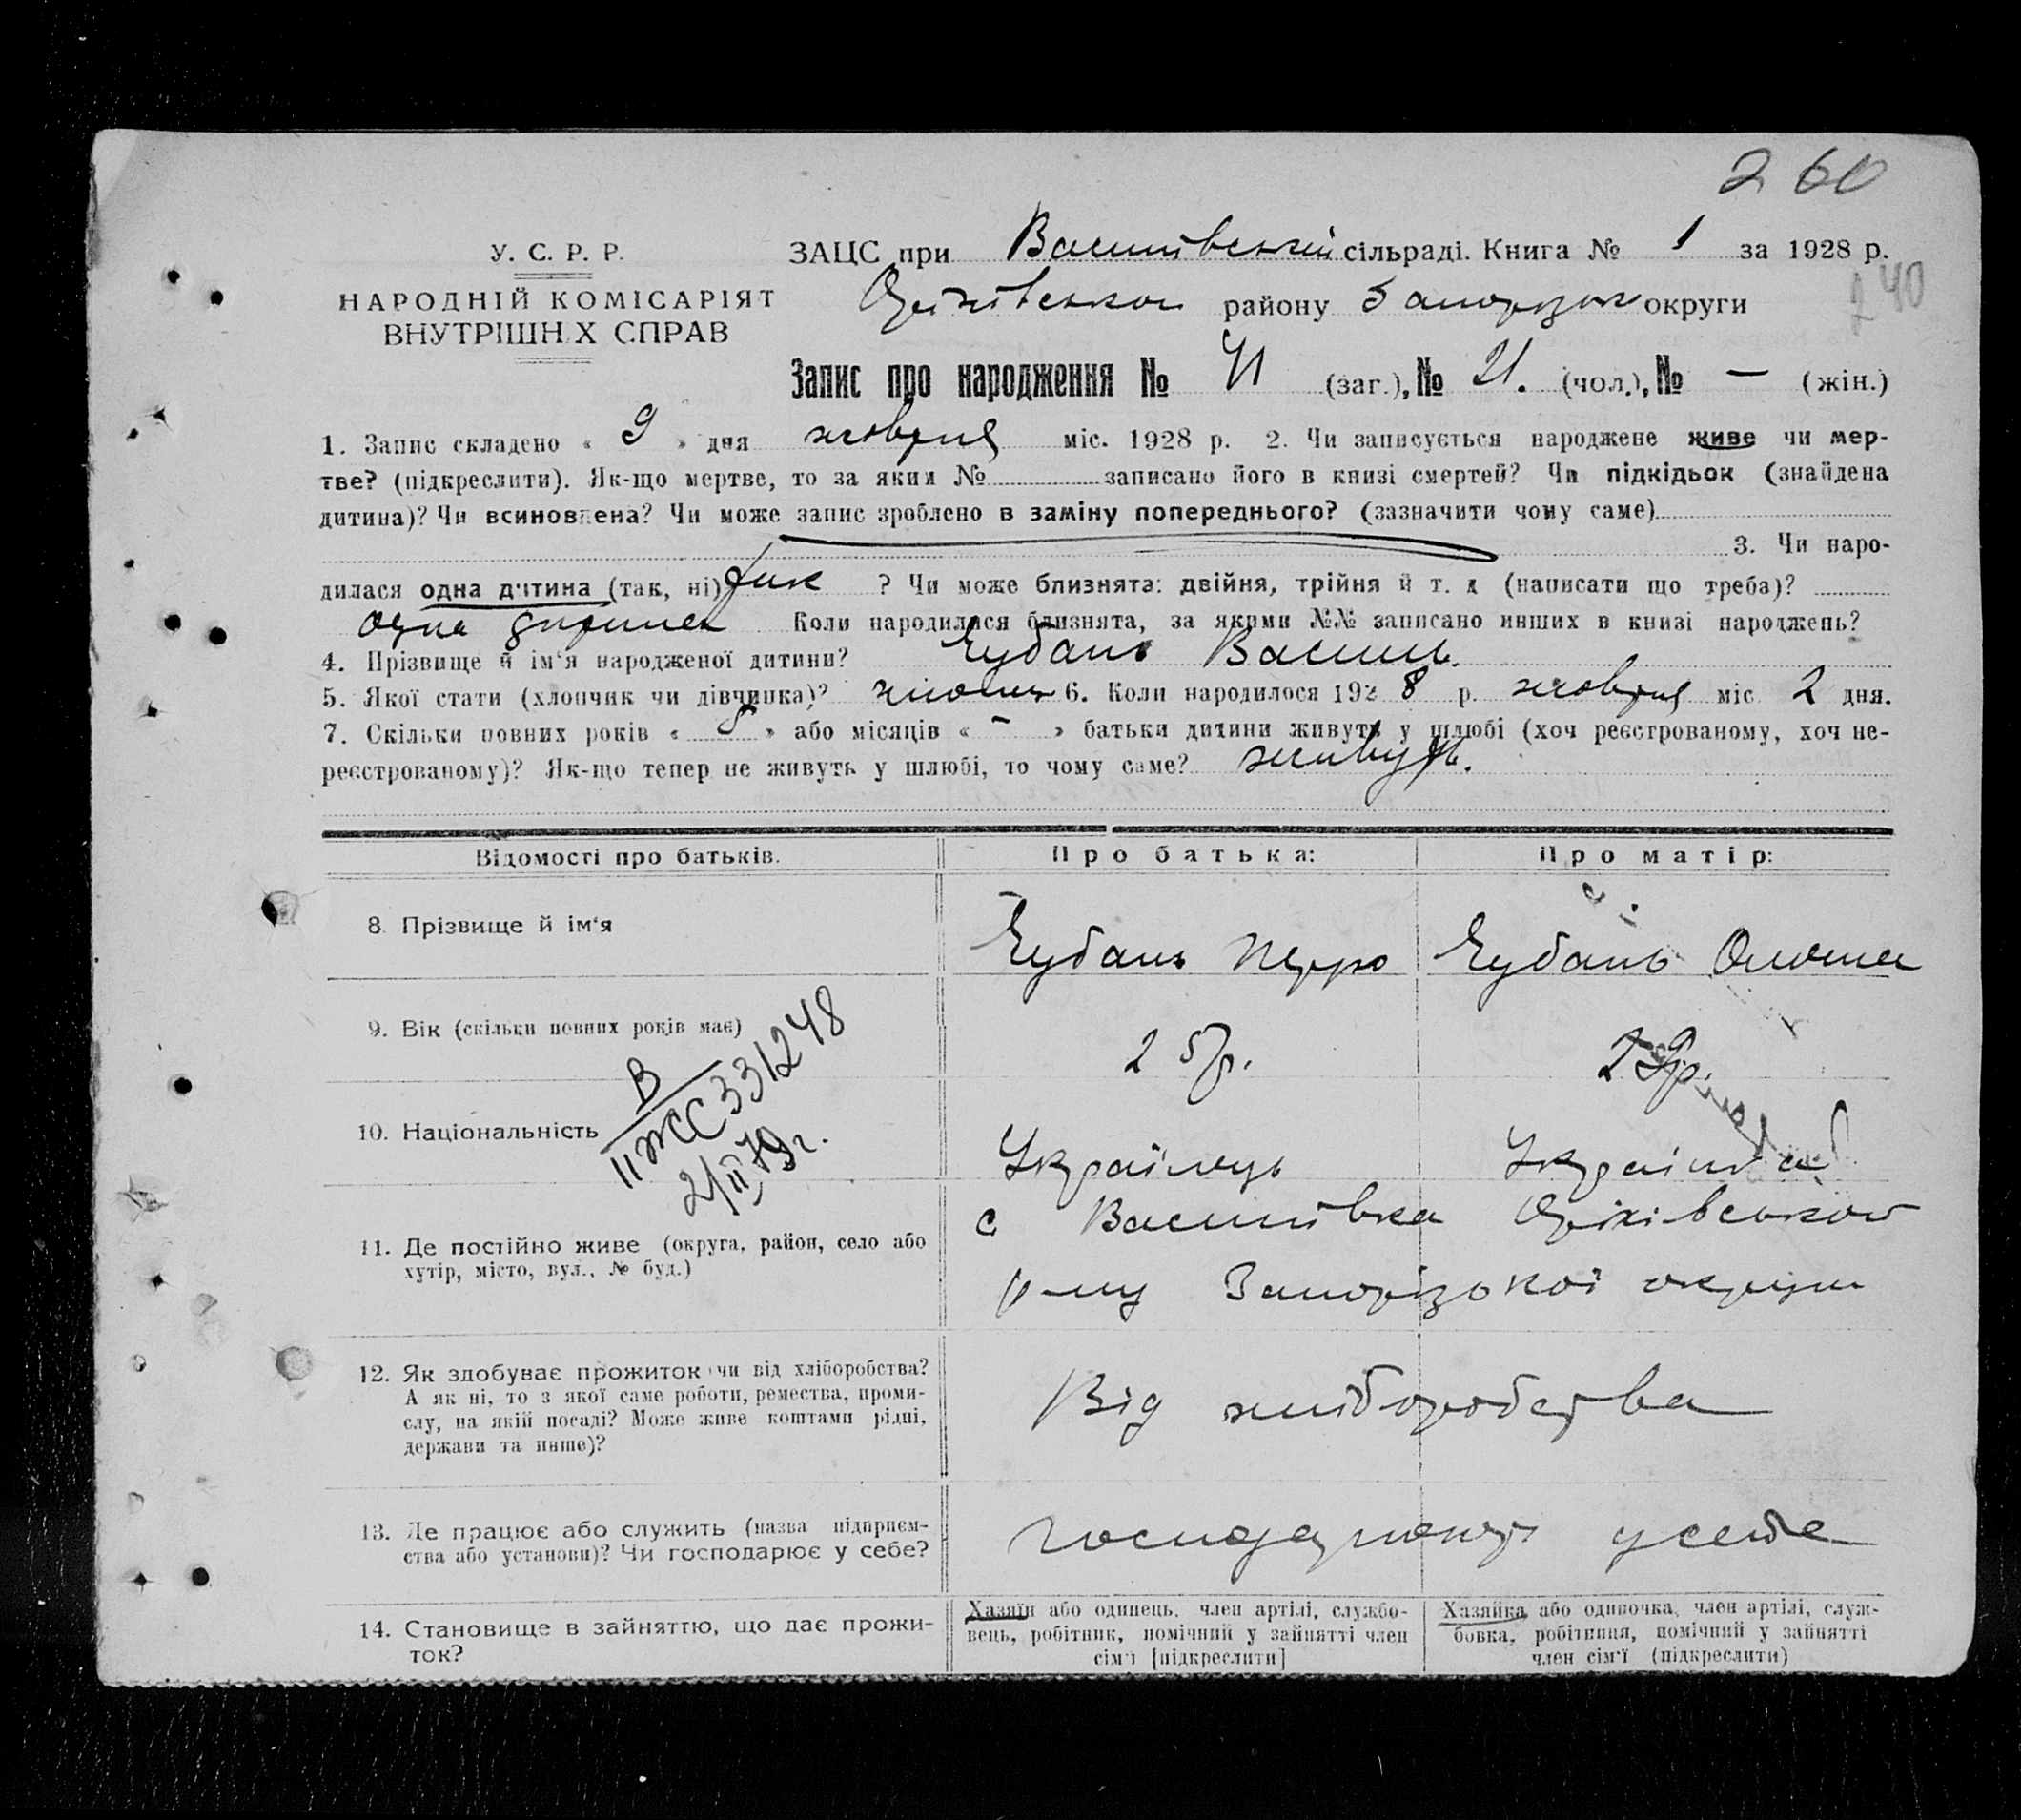 260
У. С. Р. Р.
НАРОДНІЙ КОМІСАРІЯТ
ВНУТРІШН Х СПРАВ
ЗАЦС при Василівській сільраді. Книга № 1 за 1928 р.
Оріхівськом району Запорізьк округи
240
Запис про народження № 41 (заг.), № 21. (чол.), № — (жін.)
1. Запис складено « 9 » дня жовтня міс. 1928 р. 2. Чи записується народжене живе чи мер-
тве? (підкреслити). Як-що мертве, то за яким № записано його в книзі смертей? Чи підкідьок (знайдена
дитина)? Чи всиновлена? Чи може запис зроблено в заміну попереднього? (зазначити чому саме)
3. Чи наро-
дилася одна дитина (так, ні) так ? Чи може близнята: двійня, трійня й т. д (написати що треба)?
одна дитина Коли народилися близнята, за якими №№ записано инших в книзі народжень?
4. Прізвище й ім‘я народженої дитини? Губань Василь.
5. Якої стати (хлопчик чи дівчинка)? хлопец 6. Коли народилося 1928 р. жовтня міс 2 дня.
7. Скільки повних років « 5 » або місяців « - » батьки дитини живуть у шлюбі (хоч реєстрованому, хоч не-
реєстрованому)? Як-що тепер не живуть у шлюбі, то чому саме? живуть.
Відомості про батьків.
Про батька:
Про матір:
8. Прізвище й ім‘я
Губань Петро
Губань Олена
9. Вік (скільки повних років має)
25р.
29р.
В
ІІ ЖС 331248
2/ІІ 79г.
10. Національність
Українець
Українка
11. Де постійно живе (округа, район, село або
хутір, місто, вул., № буд.)
с Василівка Оріхівського
р-ну Запорізької округи
12. Як здобуває прожиток чи від хліборобства?
А як ні, то з якої саме роботи, ремества, проми-
слу, на якій посаді? Може живе коштами рідні,
держави та инше)?
Від хліборобства
13. Де працює або служить (назва підприєм-
ства або установи)? Чи господарює у себе?
господарюют у себе
14. Становище в зайняттю, що дає прожи-
ток?
Хазяїн або одинець, член артілі, службо-
вець, робітник, помічний у зайнятті член
сім‘ї [підкреслити]
Хазяйка або одиночка, член артілі, служ-
бовка, робітниця, помічний у зайнятті
член сім‘ї (підкреслити)